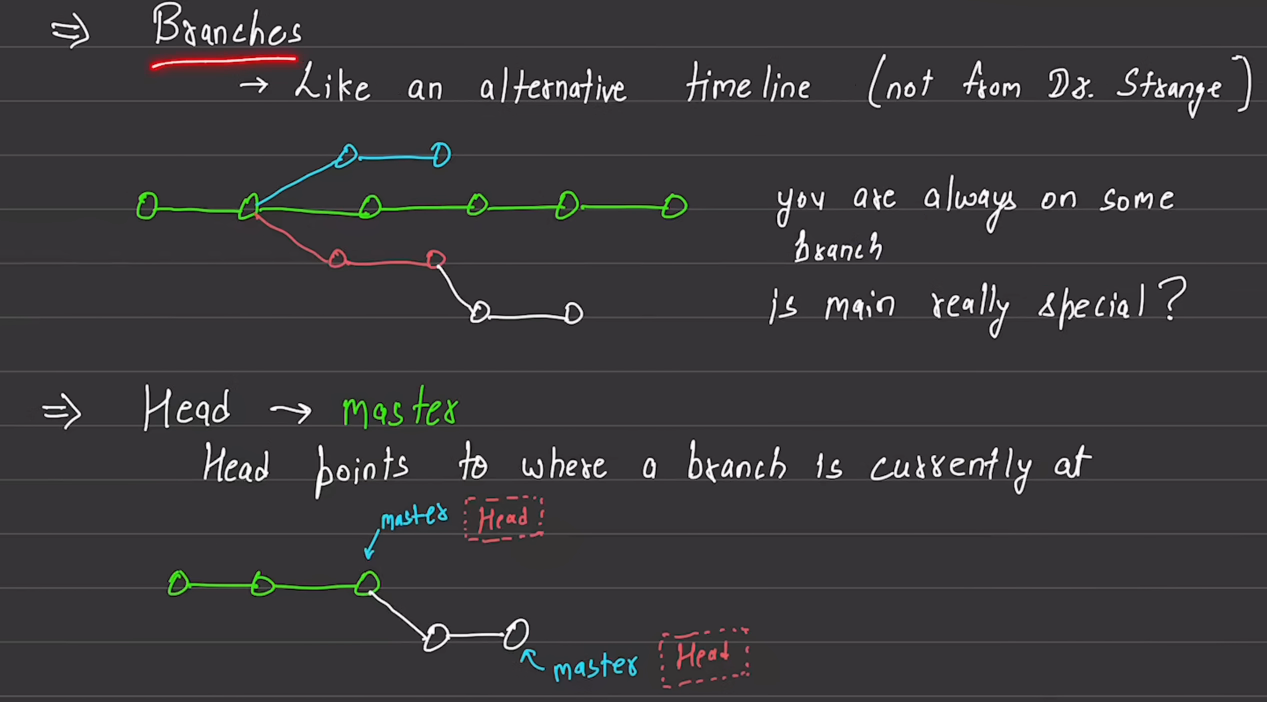 ⇒ Branches
→ Like an alternative timeline (not from Dr. Strange)
you are always on some
branch
is main really special?
⇒ Head → master
Head points to where a branch is currently at
master Head
master Head